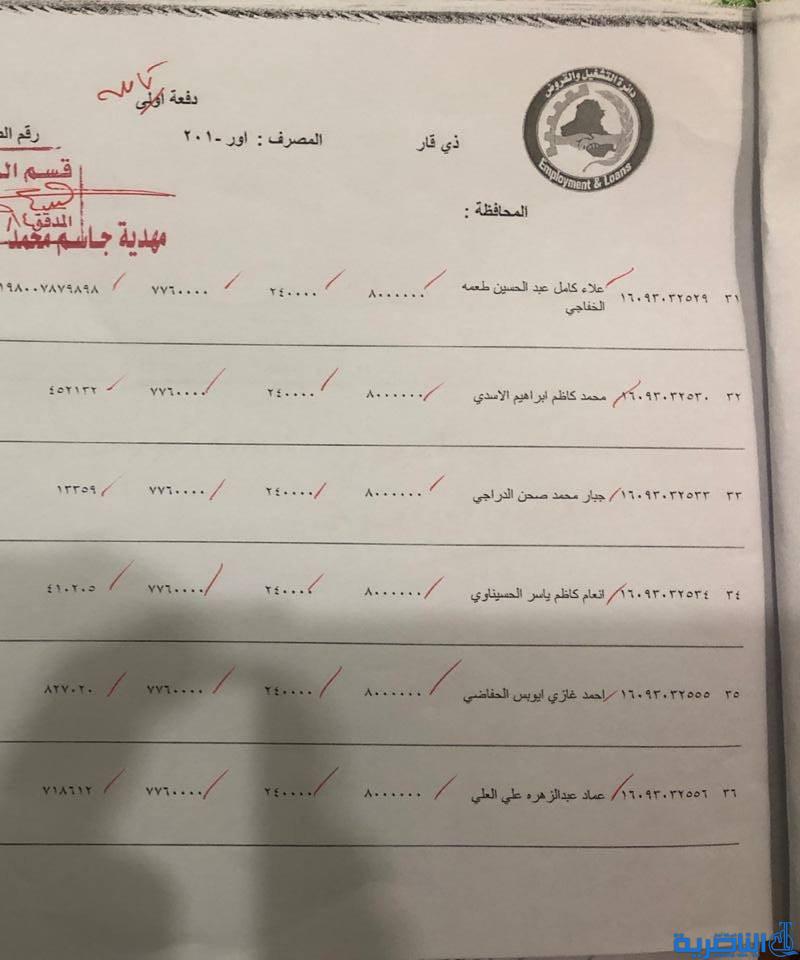 دائرة التشغيل والقروض
Employment & Loans
دفعة اولى
كاملة
ذي قار
المصرف : اور -٢٠١
المحافظة :
قسم
المدقق
مهدية جاسم محمد
٣١ ١٦٠٩٣٠٣٢٥٢٩ علاء كامل عبد الحسين طعمه ٨٠٠٠٠٠٠ ٢٤٠٠٠٠ ٧٧٦٠٠٠٠ ١٩٨٠٠٧٨٧٩٨٩٨
الخفاجي
٣٢ ١٦٠٩٣٠٣٢٥٣٠ محمد كاظم ابراهيم الاسدي ٨٠٠٠٠٠٠ ٢٤٠٠٠٠ ٧٧٦٠٠٠٠ ٤٥٢١٣٢
٣٣ ١٦٠٩٣٠٣٢٥٣٣ جبار محمد صحن الدراجي ٨٠٠٠٠٠٠ ٢٤٠٠٠٠ ٧٧٦٠٠٠٠ ١٣٣٥٩
٣٤ ١٦٠٩٣٠٣٢٥٣٤ انعام كاظم ياسر الحسيناوي ٨٠٠٠٠٠٠ ٢٤٠٠٠٠ ٧٧٦٠٠٠٠ ٤١٠٢٠٥
٣٥ ١٦٠٩٣٠٣٢٥٥٥ احمد غازي ايوبس الحفاضي ٨٠٠٠٠٠٠ ٢٤٠٠٠٠ ٧٧٦٠٠٠٠ ٨٢٧٠٢٠
٣٦ ١٦٠٩٣٠٣٢٥٥٦ عماد عبدالزهره علي العلي ٨٠٠٠٠٠٠ ٢٤٠٠٠٠ ٧٧٦٠٠٠٠ ٧١٨٦١٢
الناصرية